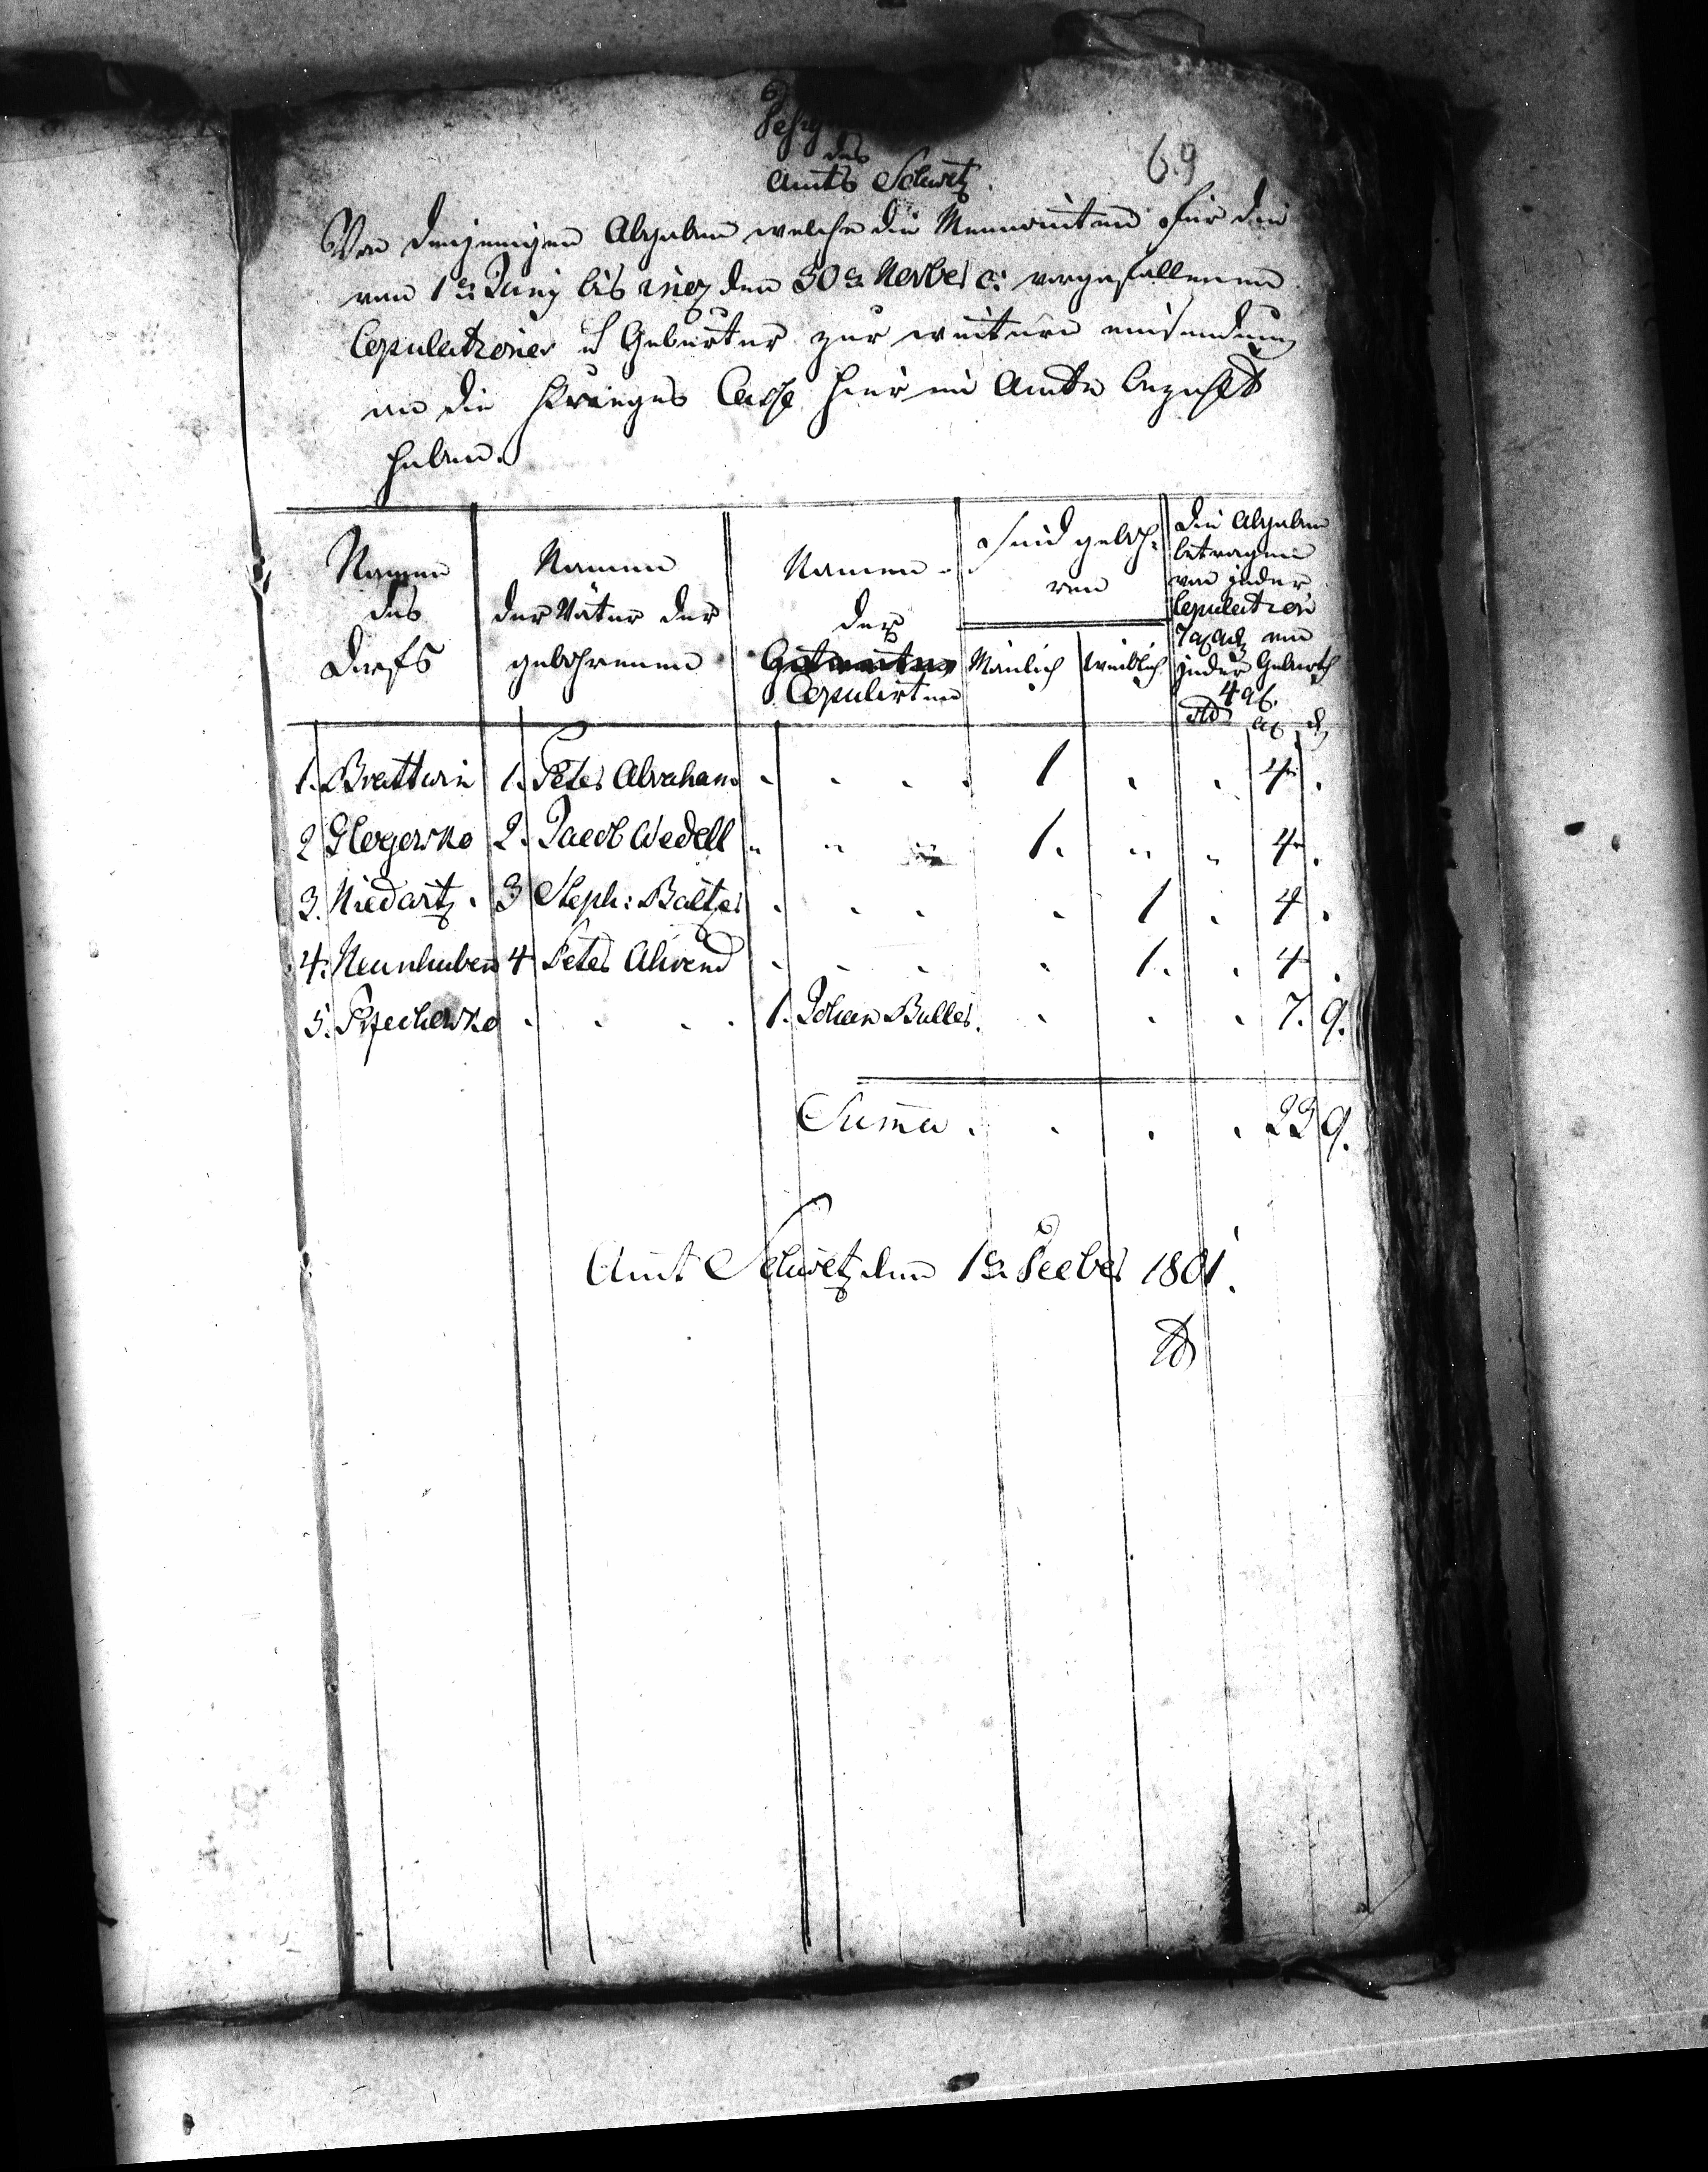 69
des
Amts Schwetz.
Von denjenigen Abgaben welche die Mennoniten für die
vom 1ten Juny bis incl den 30ten Novber c: vorgefallenen
Copulationes et Geburten zur weitern einsendung
an die Krieges Casse hier im Amte bezahlt
haben.
Namen des Dorfs | Namen der Väter der gebohrenen | Namen der Copulirten | Sind geboh-ren Mänlich | weiblich | Die Abgaben betragen von jeder Copulation 7 gg 9 d von jeder Geburth 4 gg.
1. Brattwin | 1. Peter Abraham | . | 1 | . | . | 4 | .
2 Glogowko | 2. Jacob Wedell | . | 1. | .. | .. | 4 | .
3. Niedwitz. | 3 Steph: Baltzer | . | . | 1 | . | 4 | .
4. Neunhuben | 4 Peter Ahrend | . | . | 1. | . | 4 | .
5. Przechowko | . | 1. Johan Buller. | . | . | . | 7. | 9.
Summa . . . . 23 9.
Amt Schwetz den 1ten Decber 1801.